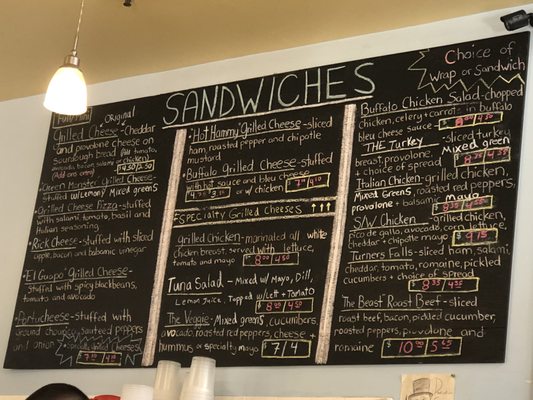 SANDWICHES
Full/Mini
Original
Grilled Cheese - Cheddar
and provolone cheese on
sourdough bread (Add tomato,
avocado, bacon, salami or chicken)
(Add ons one)
Green Monster Grilled Cheese
- Stuffed w/Lemony Mixed greens
Grilled Cheese Pizza - stuffed
with salami, tomato, basil and
Italian seasoning
Rick Cheese - Stuffed with sliced
apple, bacon, and balsamic vinegar
"El Guapo" Grilled Cheese
- Stuffed with spicy blackbeans,
tomato and avocado
- stuffed with
ground chorizo, sauteed peppers
and onion
"Hot Hammy" Grilled Cheese - sliced
ham, roasted pepper and chipotle
mustard
Buffalo Grilled Cheese - stuffed
with hot sauce and bleu cheese
or w/ chicken
Especialty Grilled Cheeses ↑↑↑
grilled chicken - marinated all white
chicken breast, served with lettuce,
tomato and mayo
Tuna Salad - Mixed w/ Mayo, Dill,
Lemon Juice, Topped w/ Lett + Tomato
The Veggie - Mixed greens, cucumbers,
avocado, roasted red peppers, cheese +
hummus or specialty mayo $ 7/4
Choice of
Wrap or Sandwich
Buffalo Chicken Salad - chopped
chicken, celery + carrots in buffalo
bleu cheese sauce
THE Turkey - sliced turkey
breast, provolone, Mixed green
+ choice of spread
Italian Chicken - grilled chicken,
Mixed Greens, roasted red peppers,
provolone + balsamic
S/W Chicken - grilled chicken,
pico de gallo, avocado, corn, lettuce
cheddar + chipotle mayo
Turners Falls - Sliced ham, salami
cheddar, tomato, romaine, pickled
cucumbers + choice of spread
The Beast Roast Beef - sliced
roast beef, bacon, pickled cucumber,
roasted peppers, provolone and
romaine